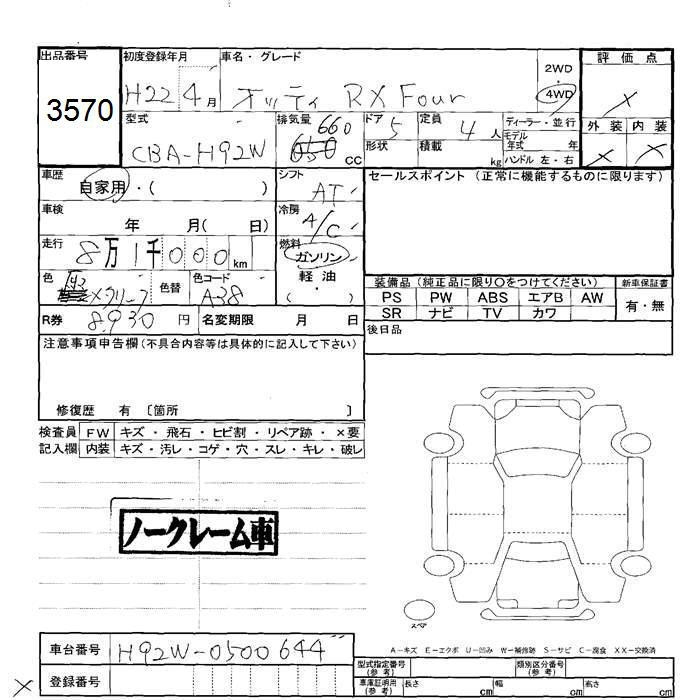 出品番号 初度登録年月 車名・グレード 2WD 4WD 評価点
3570 H22 4月 オッティ RX Four ×
型式 CBA-H92W 排気量 660 cc ドア 5 定員 4人 ディーラー・並行 外装 内装
形状 積載 kg モデル年式 年 ハンドル 左・右 × ×
車歴 自家用・( ) シフト AT セールスポイント (正常に機能するものに限ります)
車検 年 月( 日) 冷房 A/C
走行 8万1千000km 燃料 ガソリン 軽油・( )
色 色替 色コード A38 装備品 (純正品に限り〇をつけてください) 新車保証書
PS PW ABS エアB AW 有・無
SR ナビ TV カワ
R券 8930円 名変期限 月 日 後日品
注意事項申告欄(不具合内容等は具体的に記入して下さい)
修復歴 有 〔箇所 〕
検査員 FW キズ・飛石・ヒビ割・リペア跡・×要
記入欄 内装 キズ・汚レ・コゲ・穴・スレ・キレ・破レ
ノークレーム車
スペア
A-キズ E-エクボ U-凹み W-補修跡 S-サビ C-腐食 XX-交換済
車台番号 H92W-0500644
× 登録番号
型式指定番号(参考) 類別区分番号(参考)
車庫証明用(参考) 長さ cm 幅 cm 高さ cm